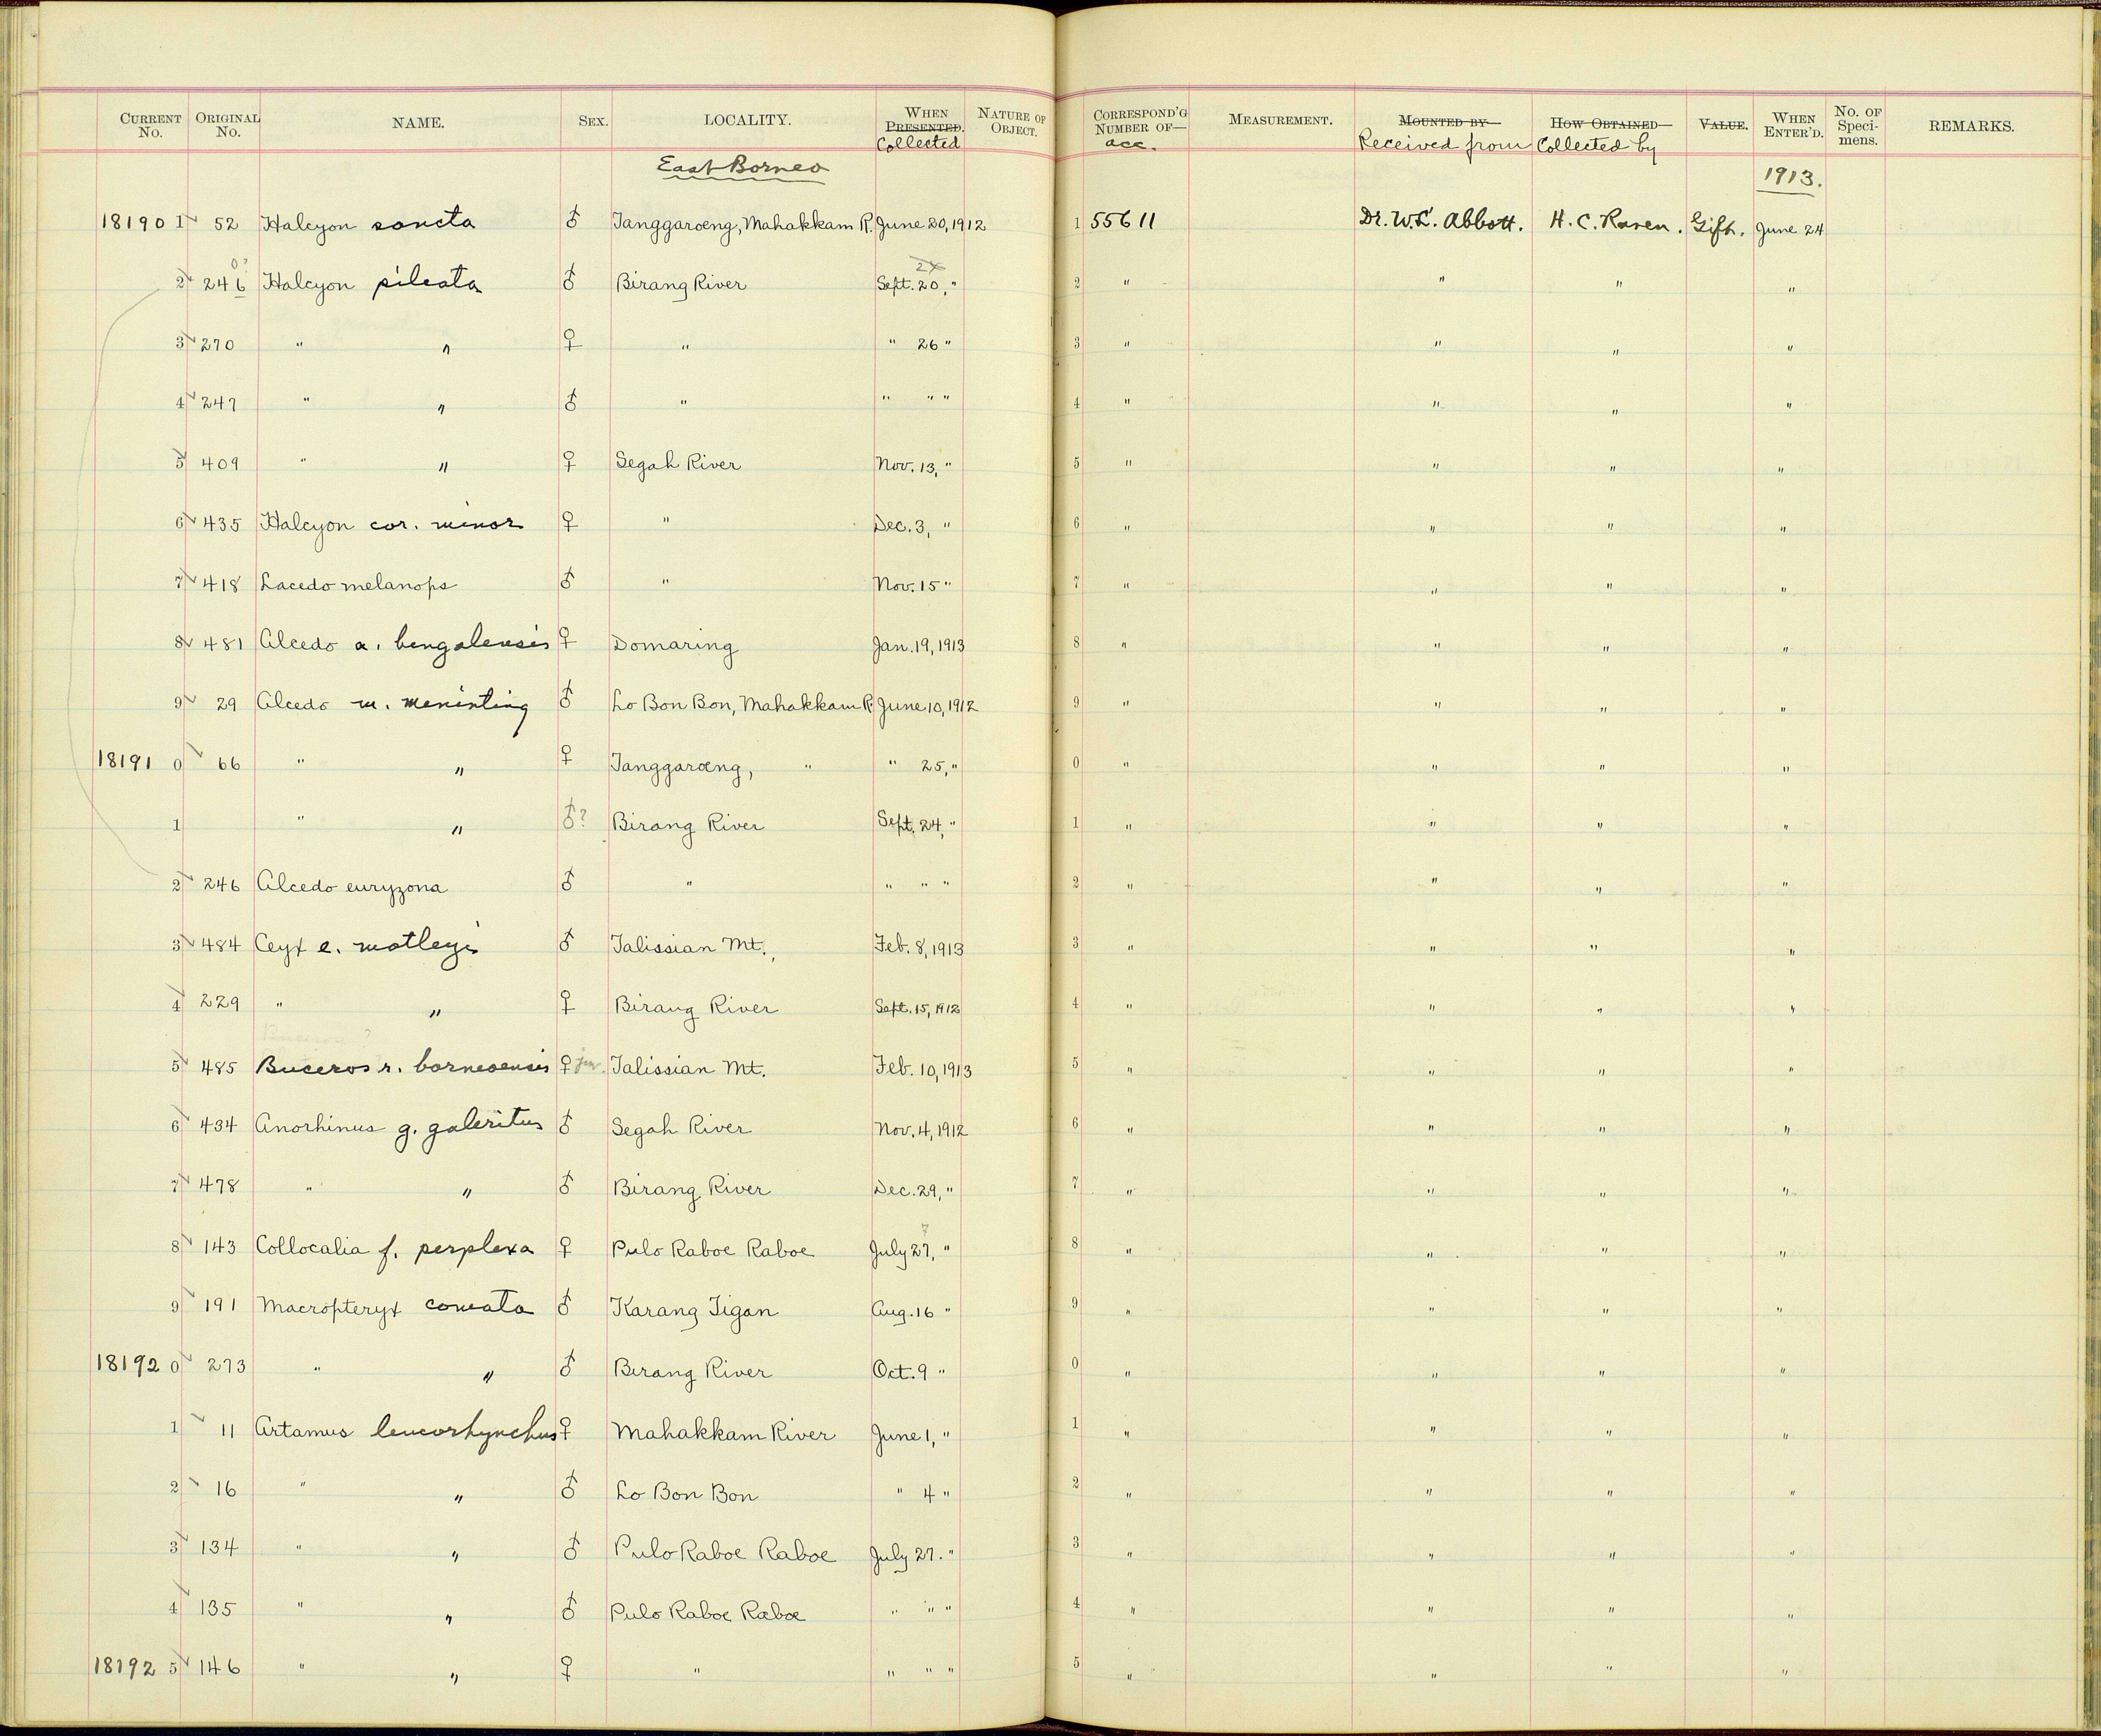 CURRENT No. ORIGINAL No. NAME. SEX. LOCALITY. WHEN PRESENTED. Collected NATURE OF OBJECT. CORRESPOND'G NUMBER OF— acc. MEASUREMENT. MOUNTED BY— Received from HOW OBTAINED— Collected by VALUE. WHEN ENTER'D. No. OF Speci-mens. REMARKS.
East Borneo 1913.
18190 1 52 Halcyon sancta ♂ Tanggaroeng, Mahakkam R. June 20, 1912 1 55611 Dr. W. L. Abbott. H. C. Raven. Gift. June 24
2 246 0? Halcyon pileata ♂ Birang River Sept. 20, " 24 2 " " " "
3 270 " " ♀ " " 26 " 3 " " " "
4 247 " " ♂ " " " " 4 " " " "
5 409 " " ♀ Segah River Nov. 13, " 5 " " " "
6 435 Halcyon cor. minor ♀ " Dec. 3, " 6 " " " "
7 418 Lacedo melanops ♂ " Nov. 15 " 7 " " " "
8 481 Alcedo a. bengalensis ♀ Domaring Jan. 19, 1913 8 " " " "
9 29 Alcedo m. meninting ♂ Lo Bon Bon, Mahakkam R. June 10, 1912 9 " " " "
18191 0 66 " " ♀ Tanggaroeng, " " 25, " 0 " " " "
1 " " ♂? Birang River Sept. 24, " 1 " " " "
2 246 Alcedo euryzona ♂ " " " " 2 " " " "
3 484 Ceyx e. motleyi ♂ Talissian Mt., Feb. 8, 1913 3 " " " "
4 229 " " ♀ Birang River Sept. 15, 1912 4 " " " "
Buceros ?
5 485 Buceros r. borneoensis ♀ juv. Talissian Mt. Feb. 10, 1913 5 " " " "
6 434 Anorhinus g. galeritus ♂ Segah River Nov. 4, 1912 6 " " " "
7 478 " " ♂ Birang River Dec. 29, " 7 " " " "
8 143 Collocalia f. perplexa ♀ Pulo Raboe Raboe July 27, " 7 8 " " " "
9 191 Macropteryx comata ♂ Karang Tigan Aug. 16 " 9 " " " "
18192 0 273 " " ♂ Birang River Oct. 9 " 0 " " " "
1 11 Artamus leucorhynchus ♀ Mahakkam River June 1, " 1 " " " "
2 16 " " ♂ Lo Bon Bon " 4 " 2 " " " "
3 134 " " ♂ Pulo Raboe Raboe July 27. " 3 " " " "
4 135 " " ♂ Pulo Raboe Raboe " " " 4 " " " "
18192 5 146 " " ♀ " " " " 5 " " " "